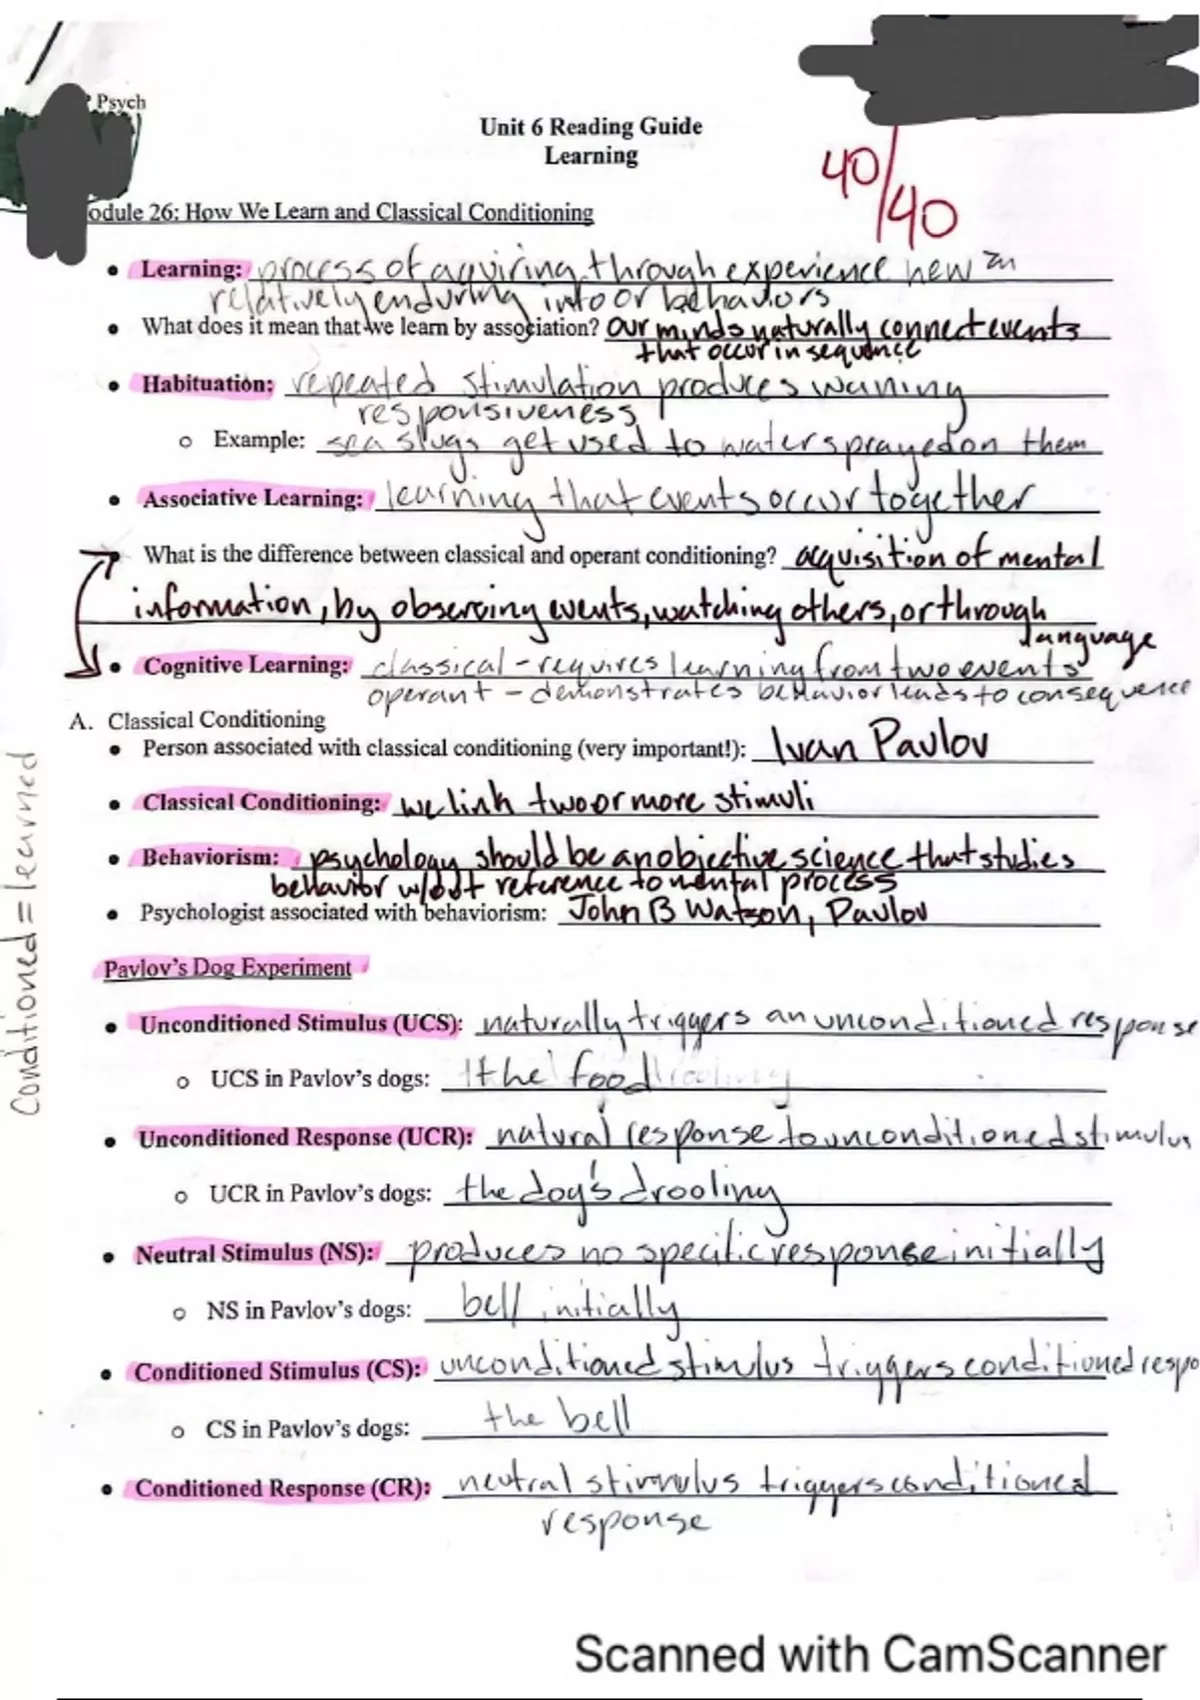 Psych
Unit 6 Reading Guide
Learning
40/40
odule 26: How We Learn and Classical Conditioning
Learning: process of acquiring through experience new
relatively enduring info or behaviors
What does it mean that we learn by association? our minds naturally connect events
that occur in sequence
Habituation: repeated stimulation produces waning
responsiveness
Example: sea slugs get used to water sprayed on them
Associative Learning: learning that events occur together
What is the difference between classical and operant conditioning? acquisition of mental
information, by observing events, watching others, or through
language
Cognitive Learning: classical - requires learning from two events
operant - demonstrates behavior leads to consequence
A. Classical Conditioning
Person associated with classical conditioning (very important!): Ivan Pavlov
Classical Conditioning: we link two or more stimuli
Behaviorism: psychology should be an objective science that studies
behavior w/out reference to mental process
Psychologist associated with behaviorism: John B Watson, Pavlov
Conditioned = learned
Pavlov's Dog Experiment
Unconditioned Stimulus (UCS): naturally triggers an unconditioned response
UCS in Pavlov's dogs: the food
Unconditioned Response (UCR): natural response to unconditioned stimulus
UCR in Pavlov's dogs: the dog's drooling
Neutral Stimulus (NS): produces no specific response initially
NS in Pavlov's dogs: bell initially
Conditioned Stimulus (CS): unconditioned stimulus triggers conditioned respo
CS in Pavlov's dogs: the bell
Conditioned Response (CR): neutral stimulus triggers conditioned
response
Scanned with CamScanner